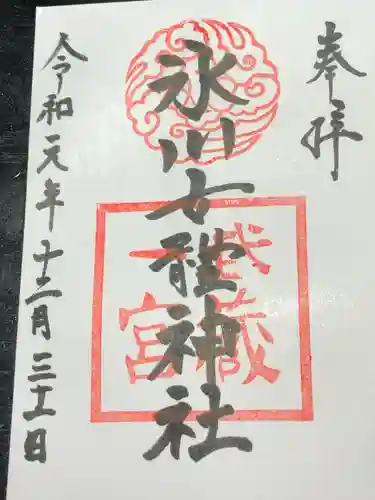 奉拝
氷川女體神社
武蔵
一宮
令和元年十二月三十一日